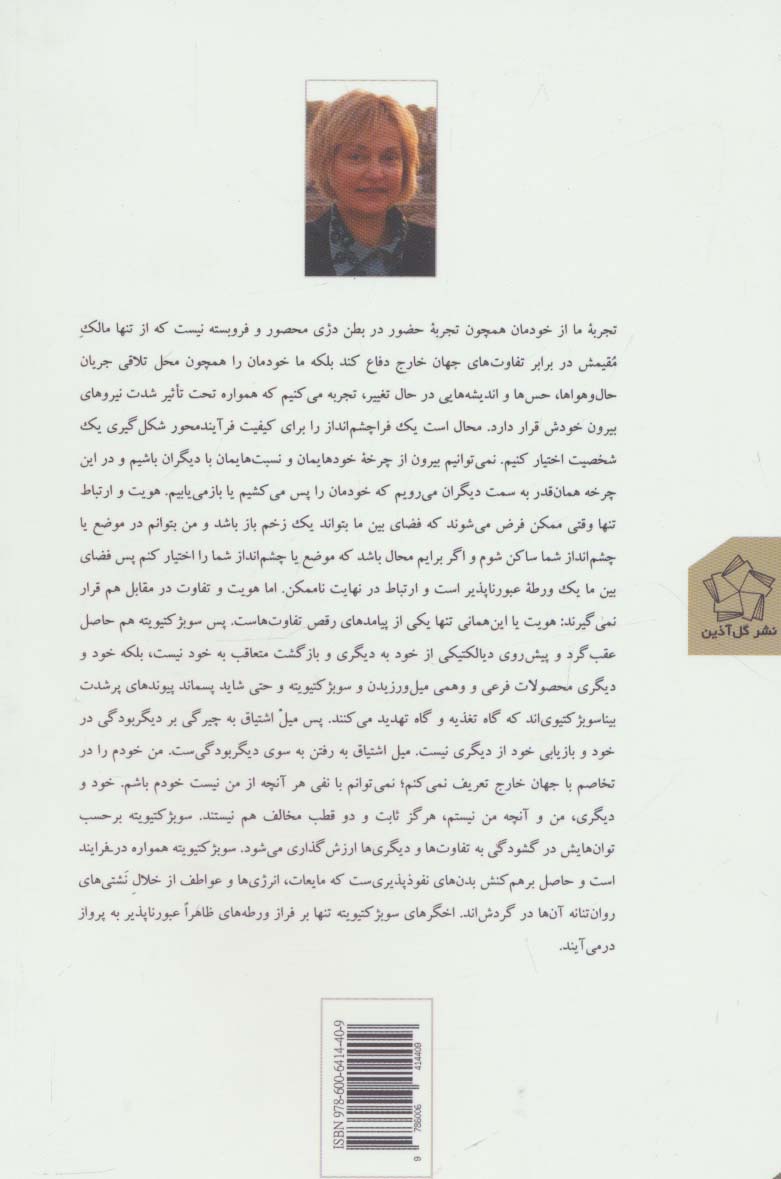 تجربهٔ ما از خودمان همچون تجربهٔ حضور در بطن دژی محصور و فروبسته نیست که از تنها مالکِ
مُقیمش در برابر تفاوت‌های جهان خارج دفاع کند بلکه ما خودمان را همچون محل تلاقی جریان
حال‌وهواها، حس‌ها و اندیشه‌هایی در حال تغییر، تجربه می‌کنیم که همواره تحت تأثیر شدت نیروهای
بیرون خودش قرار دارد. محال است یک فراچشم‌انداز را برای کیفیت فرآیندمحور شکل‌گیری یک
شخصیت اختیار کنیم. نمی‌توانیم بیرون از چرخهٔ خودهایمان و نسبت‌هایمان با دیگران باشیم و در این
چرخه همان‌قدر به سمت دیگران می‌رویم که خودمان را پس می‌کشیم یا بازمی‌یابیم. هویت و ارتباط
تنها وقتی ممکن فرض می‌شوند که فضای بین ما بتواند یک زخم باز باشد و من بتوانم در موضع یا
چشم‌انداز شما ساکن شوم و اگر برایم محال باشد که موضع یا چشم‌انداز شما را اختیار کنم پس فضای
بین ما یک ورطهٔ عبورناپذیر است و ارتباط در نهایت ناممکن. اما هویت و تفاوت در مقابل هم قرار
نمی‌گیرند: هویت یا این‌همانی تنها یکی از پیامدهای رقص تفاوت‌هاست. پس سوبژکتیویته هم حاصل
عقب‌گرد و پیش‌روی دیالکتیکی از خود به دیگری و بازگشت متعاقب به خود نیست، بلکه خود و
دیگری محصولات فرعی و وهمی میل‌ورزیدن و سوبژکتیویته و حتی شاید پسماند پیوندهای پرشدت
بیناسوبژکتیوی‌اند که گاه تغذیه و گاه تهدید می‌کنند. پس میلْ اشتیاق به چیرگی بر دیگربودگی در
خود و بازیابی خود از دیگری نیست. میل اشتیاق به رفتن به سوی دیگربودگی‌ست. من خودم را در
تخاصم با جهان خارج تعریف نمی‌کنم؛ نمی‌توانم با نفی هر آنچه از من نیست خودم باشم. خود و
دیگری، من و آنچه من نیستم، هرگز ثابت و دو قطب مخالف هم نیستند. سوبژکتیویته برحسب
توان‌هایش در گشودگی به تفاوت‌ها و دیگری‌ها ارزش‌گذاری می‌شود. سوبژکتیویته همواره در-فرایند
است و حاصل برهم‌کنش بدن‌های نفوذپذیری‌ست که مایعات، انرژی‌ها و عواطف از خلالِ نَشتی‌های
روان‌تنانه آن‌ها در گردش‌اند. اخگرهای سوبژکتیویته تنها بر فراز ورطه‌های ظاهراً عبورناپذیر به پرواز
درمی‌آیند.
نشر گل‌آذین
ISBN 978-600-6414-40-9
9 786006 414409